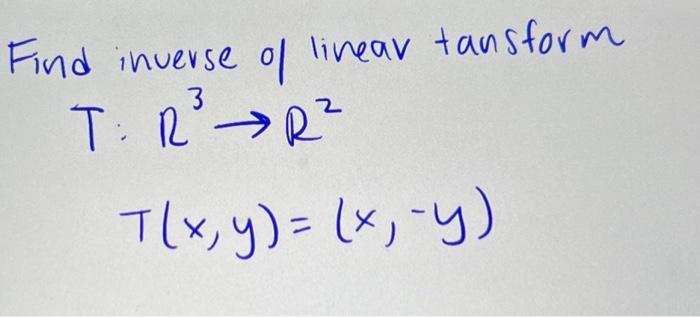 Find inverse of linear tansform
T: R³ → R²
T(x,y) = (x,-y)